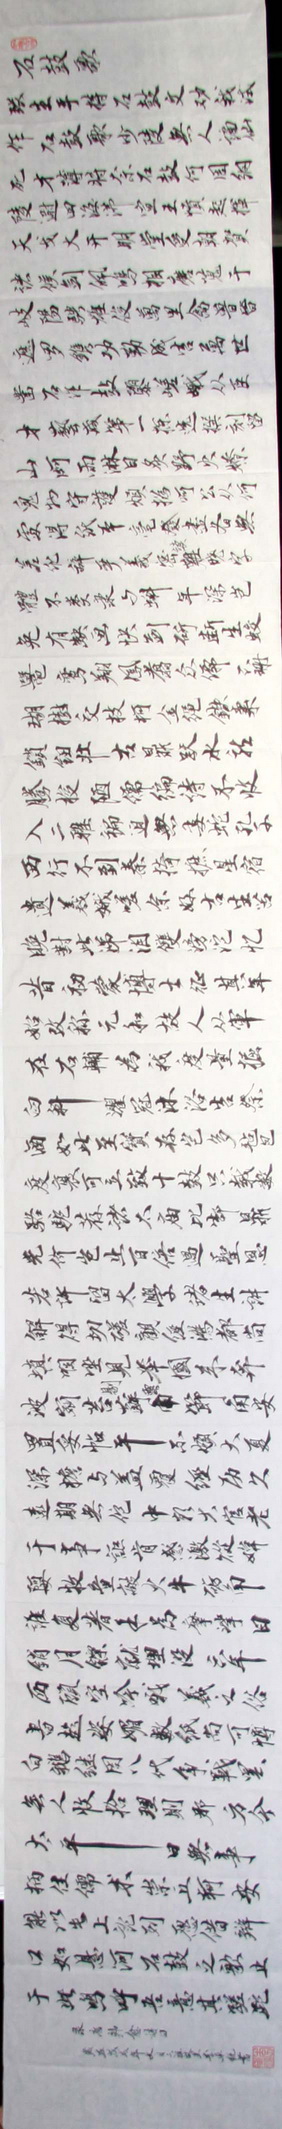 石鼓歌
張生手持石鼓文勸我試
作石鼓歌少陵無人謫仙
死才薄將奈石鼓何周綱
陵遲四海沸宣王憤起揮
天戈大開明堂受朝賀
諸侯劍佩鳴相磨蒐于
岐陽騁雄俊萬里禽獸皆
遮羅鐫功勒成告萬世
鑿石作鼓隳嵯峨從臣
才藝咸第一揀選撰刻留
山阿雨淋日炙野火燎
鬼物守護煩撝呵公從何
處得紙本毫髮盡備無
差訛辭嚴義密讀難曉字
體不類隸與蝌年深豈
免有缺畫快劍斫斷生蛟
鼉鸞翔鳳翥眾仙下珊
瑚樹交枝柯金繩鐵索
鎖鈕壯古鼎躍水龍
騰梭陋儒編詩不收
入二雅褊迫無委蛇孔子
西行不到秦掎摭星宿
遺羲娥嗟余好古生苦
晚對此涕淚雙滂沱憶
昔初蒙博士征其年
始改稱元和故人從軍
在右輔為我度量掘
臼科濯冠沐浴告祭
酒如此至寶存豈多氈包
席裹可立致十鼓只載數
駱駝薦諸太廟比郜鼎
光價豈止百倍過聖恩
若許留太學諸生講
解得切磋觀經鴻都尚
填咽坐見舉國來奔
波剜苔剔蘚露節角安
置妥帖平不頗大廈
深簷與蓋覆經歷久
遠期無佗中朝大官老
于事詎肯感激徒媕
婀牧童敲火牛礪角
誰復著手為摩挲日
銷月鑠就埋沒六年
西顧空吟哦羲之俗
書趁姿媚數紙尚可博
白鵝繼周八代爭戰罷
無人收拾理則那方今
太平日無事
柄任儒術崇丘軻安
能以此上論列願借辯
口如懸河石鼓之歌止
于此嗚呼吾意其蹉跎